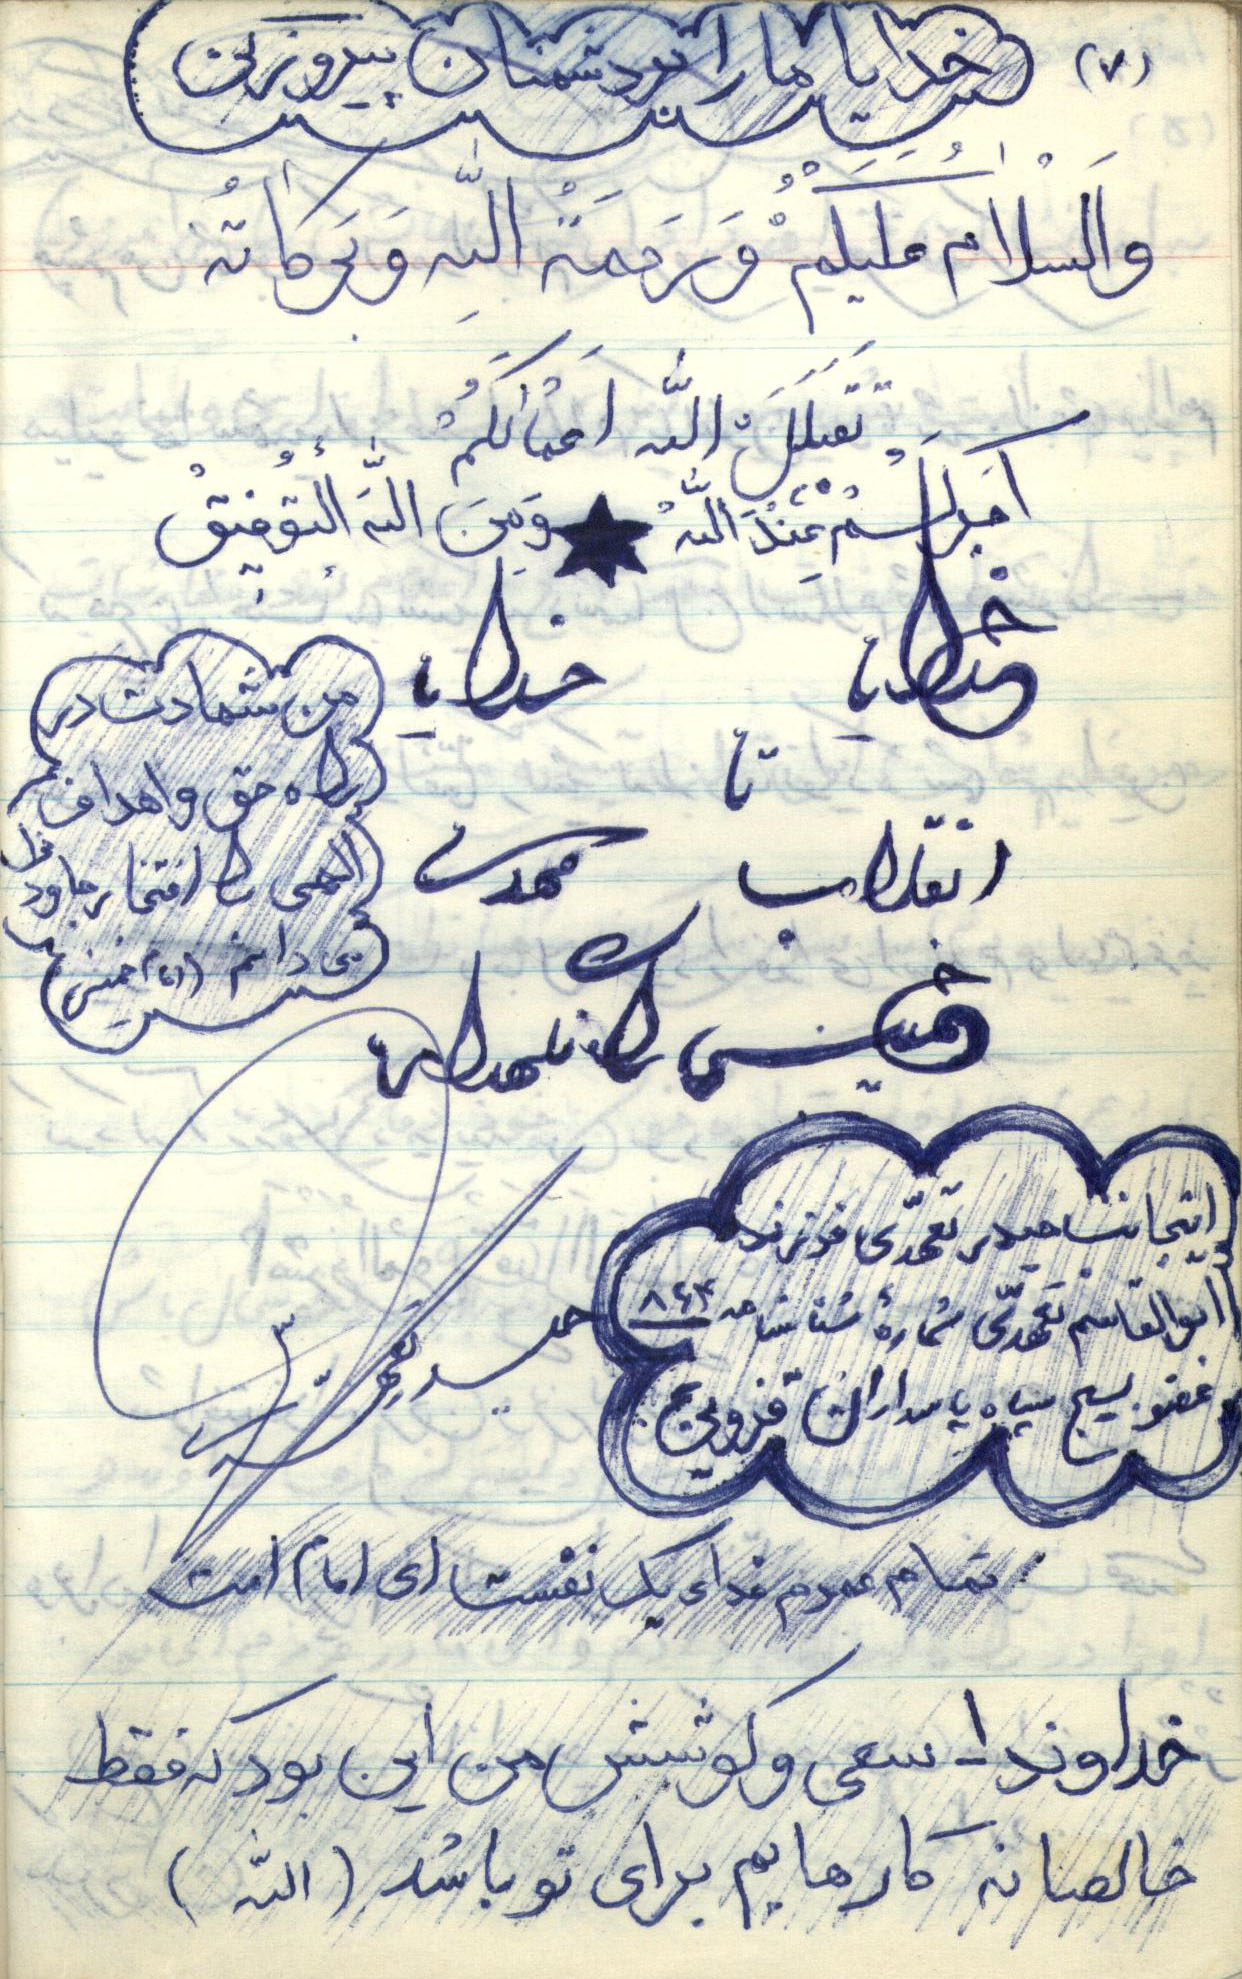 (۷)
خدایا ما را بر دشمنان پیروز کن
وَالسَّلامُ عَلَیْکُمْ وَ رَحْمَةُ اللهِ وَ بَرَکاتُهُ
تَقَبَّلَ اللهُ اَعْمالَکُمْ
اَجْرُکُمْ عِنْدَ اللهْ وَ مِنَ اللهِ التَّوْفیقْ
خدایا خدایا
تا
انقلاب مهدی
خمینی را نگهدار
من شهادت در
راه حق و اهداف
الهی را افتخار جاودانی
می دانم (امام خمینی)
اینجانب حیدر تعهدّی فرزند
ابوالقاسم تعهدّی شمارهٔ شناسنامه ۸۶۴
عضو بسیج سپاه پاسداران قزوین
حیدر تعهدّی
تمام عمرم فدای یک نفست ای امام امت
خداوندا - سعی و کوشش من این بود که فقط
خالصانه کارهایم برای تو باشد (الله)